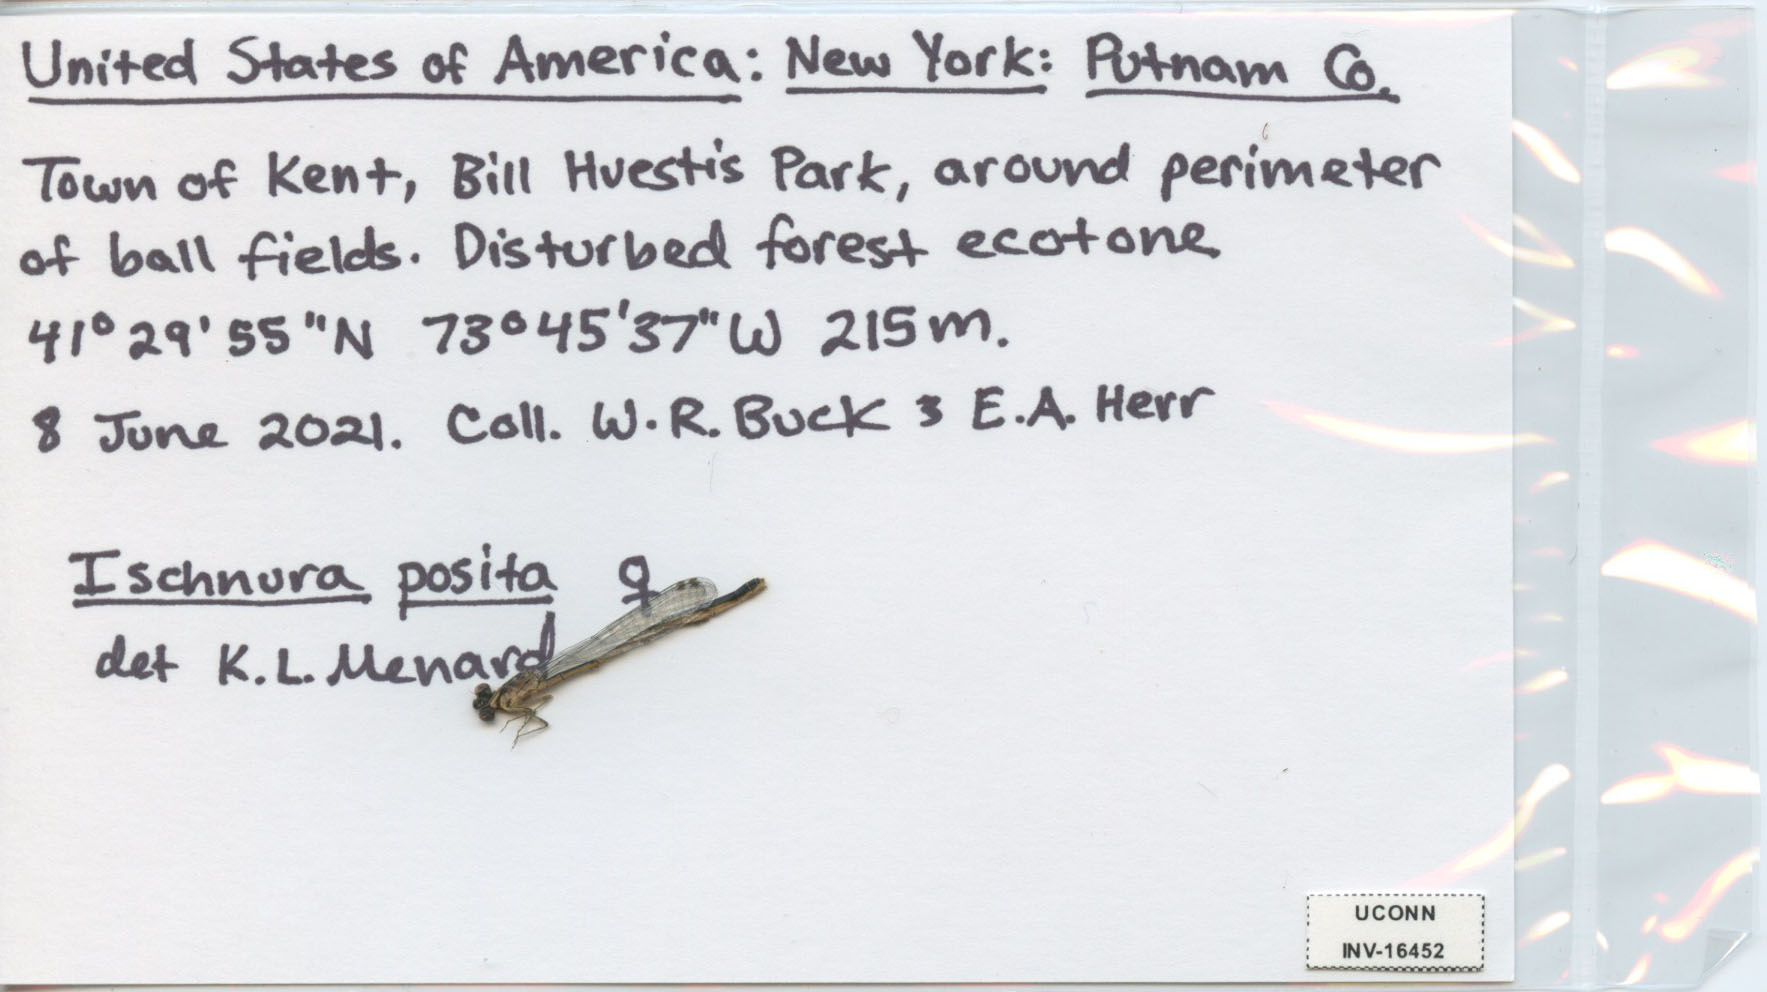 United States of America: New York: Putnam Co.
Town of Kent, Bill Huestis Park, around perimeter
of ball fields. Disturbed forest ecotone
41° 29' 55"N 73° 45' 37" W 215m.
8 June 2021. Coll. W.R. Buck & E.A. Herr
Ischnura posita ♀
det K.L. Menard
UCONN
INV-16452